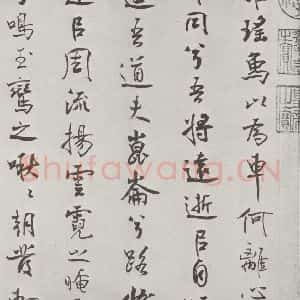 瑤象以為車何離心
同兮吾將遠逝㠯自
邅吾道夫崑崙兮路修
遠㠯周流揚雲霓之晻
鳴玉鸞之啾々朝發
shufawang.CN